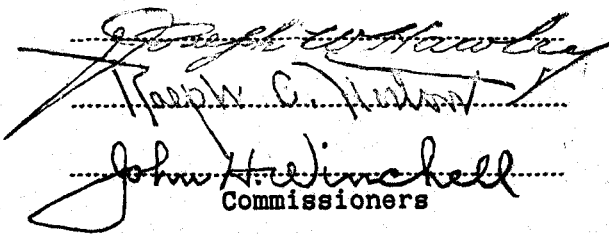 Joseph W Hawley
Ralph C. Horton
John H. Winchell
Commissioners